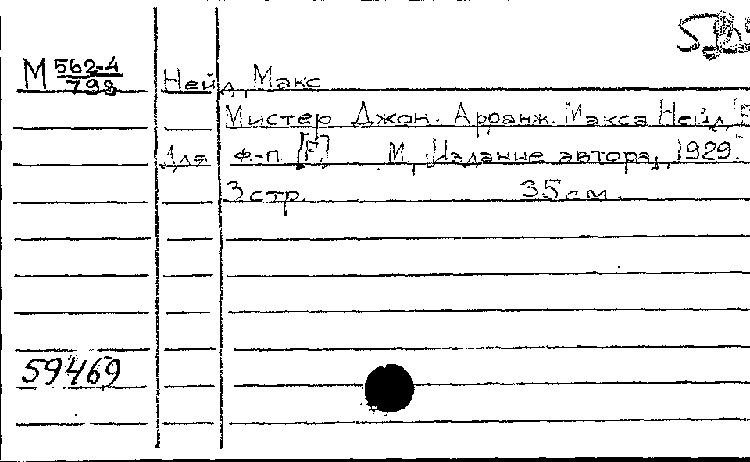 М 562-4/798
Нейд, Макс
Мистер Джон. Арранж. Макса Нейд
Для ф-п. [F] М., Издание автора, 1929.
3 стр. 35 см.
59469